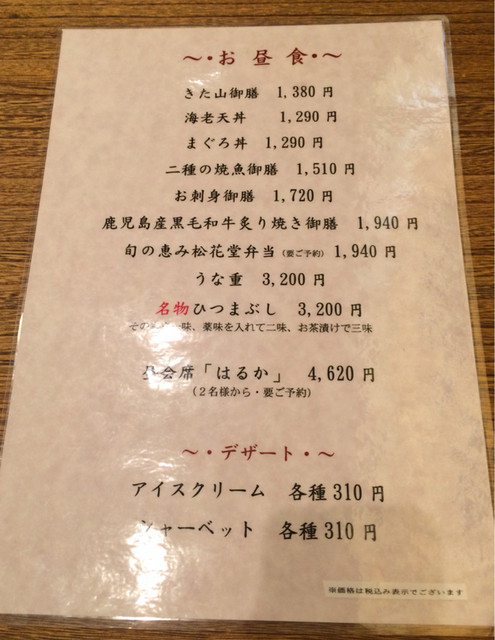 〜・お 昼 食・〜
きた山御膳 1,380 円
海老天丼 1,290 円
まぐろ丼 1,290 円
二種の焼魚御膳 1,510 円
お刺身御膳 1,720 円
鹿児島産黒毛和牛炙り焼き御膳 1,940 円
旬の恵み松花堂弁当（要ご予約）1,940 円
うな重 3,200 円
名物ひつまぶし 3,200 円
その 味、薬味を入れて二味、お茶漬けで三味
会席「はるか」 4,620 円
（２名様から・要ご予約）
〜・デザート・〜
アイスクリーム 各種 310 円
シャーベット 各種 310 円
※価格は税込み表示でございます